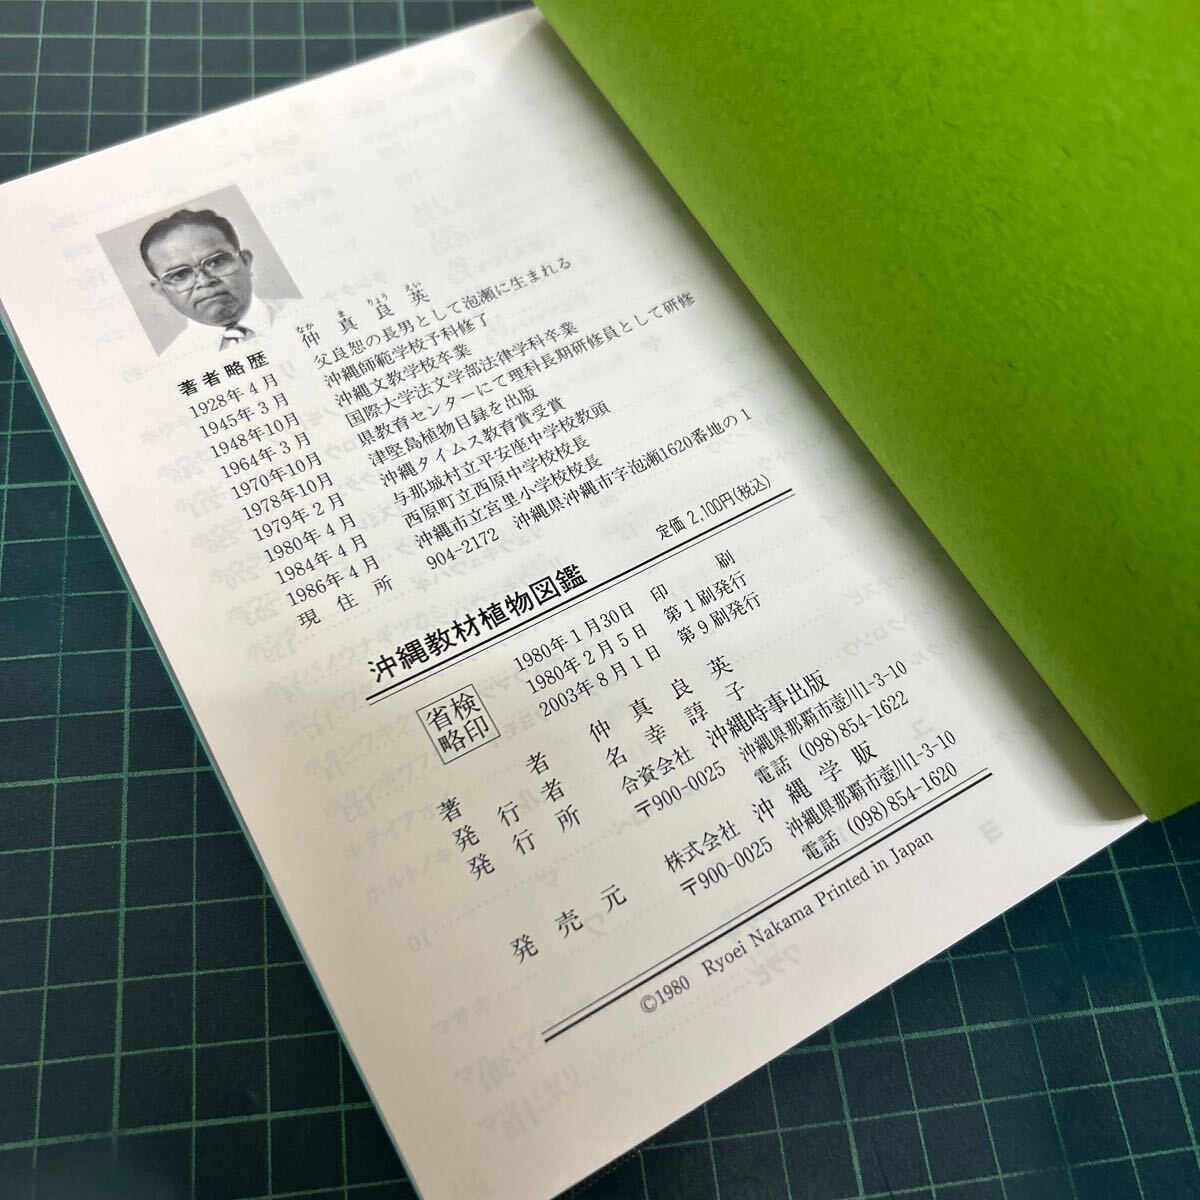 仲真良英
なかまりょうえい
著者略歴
1928年4月 父良恕の長男として泡瀬に生まれる
1945年3月 沖縄師範学校予科修了
1948年10月 沖縄文教学校卒業
1964年3月 国際大学法文学部法律学科卒業
1970年10月 県教育センターにて理科長期研修員として研修
1978年10月 津堅島植物目録を出版
1979年2月 沖縄タイムス教育賞受賞
1980年4月 与那城村立平安座中学校教頭
1984年4月 西原町立西原中学校校長
1986年4月 沖縄市立宮里小学校校長
現住所 904-2172 沖縄県沖縄市字泡瀬1620番地の1
沖縄教材植物図鑑 定価 2,100円(税込)
1980年1月30日 印刷
1980年2月5日 第1刷発行
2003年8月1日 第9刷発行
検印
省略
著者 仲真良英
発行者 名幸諄子
発行所 合資会社 沖縄時事出版
〒900-0025 沖縄県那覇市壺川1-3-10
電話 (098)854-1622
発売元 株式会社 沖縄学販
〒900-0025 沖縄県那覇市壺川1-3-10
電話 (098)854-1620
©1980 Ryoei Nakama Printed in Japan